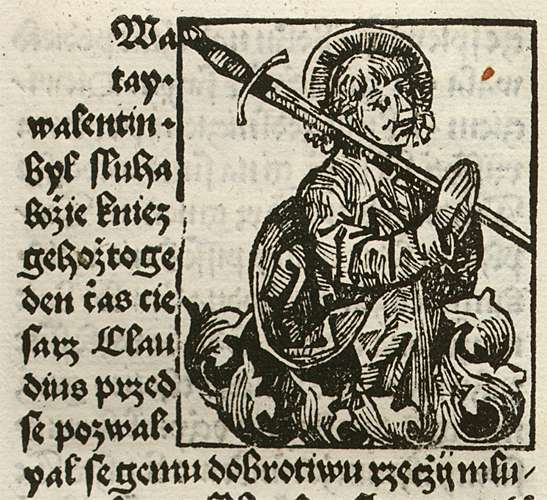 Swa
tay·
walentin·
byl sluha
božie kniez
gehožto ge
den čas cie
sarz Clau
dius przed
se pozwal·
ptal se gemu dobrotiwu rzečzij mlu⸗